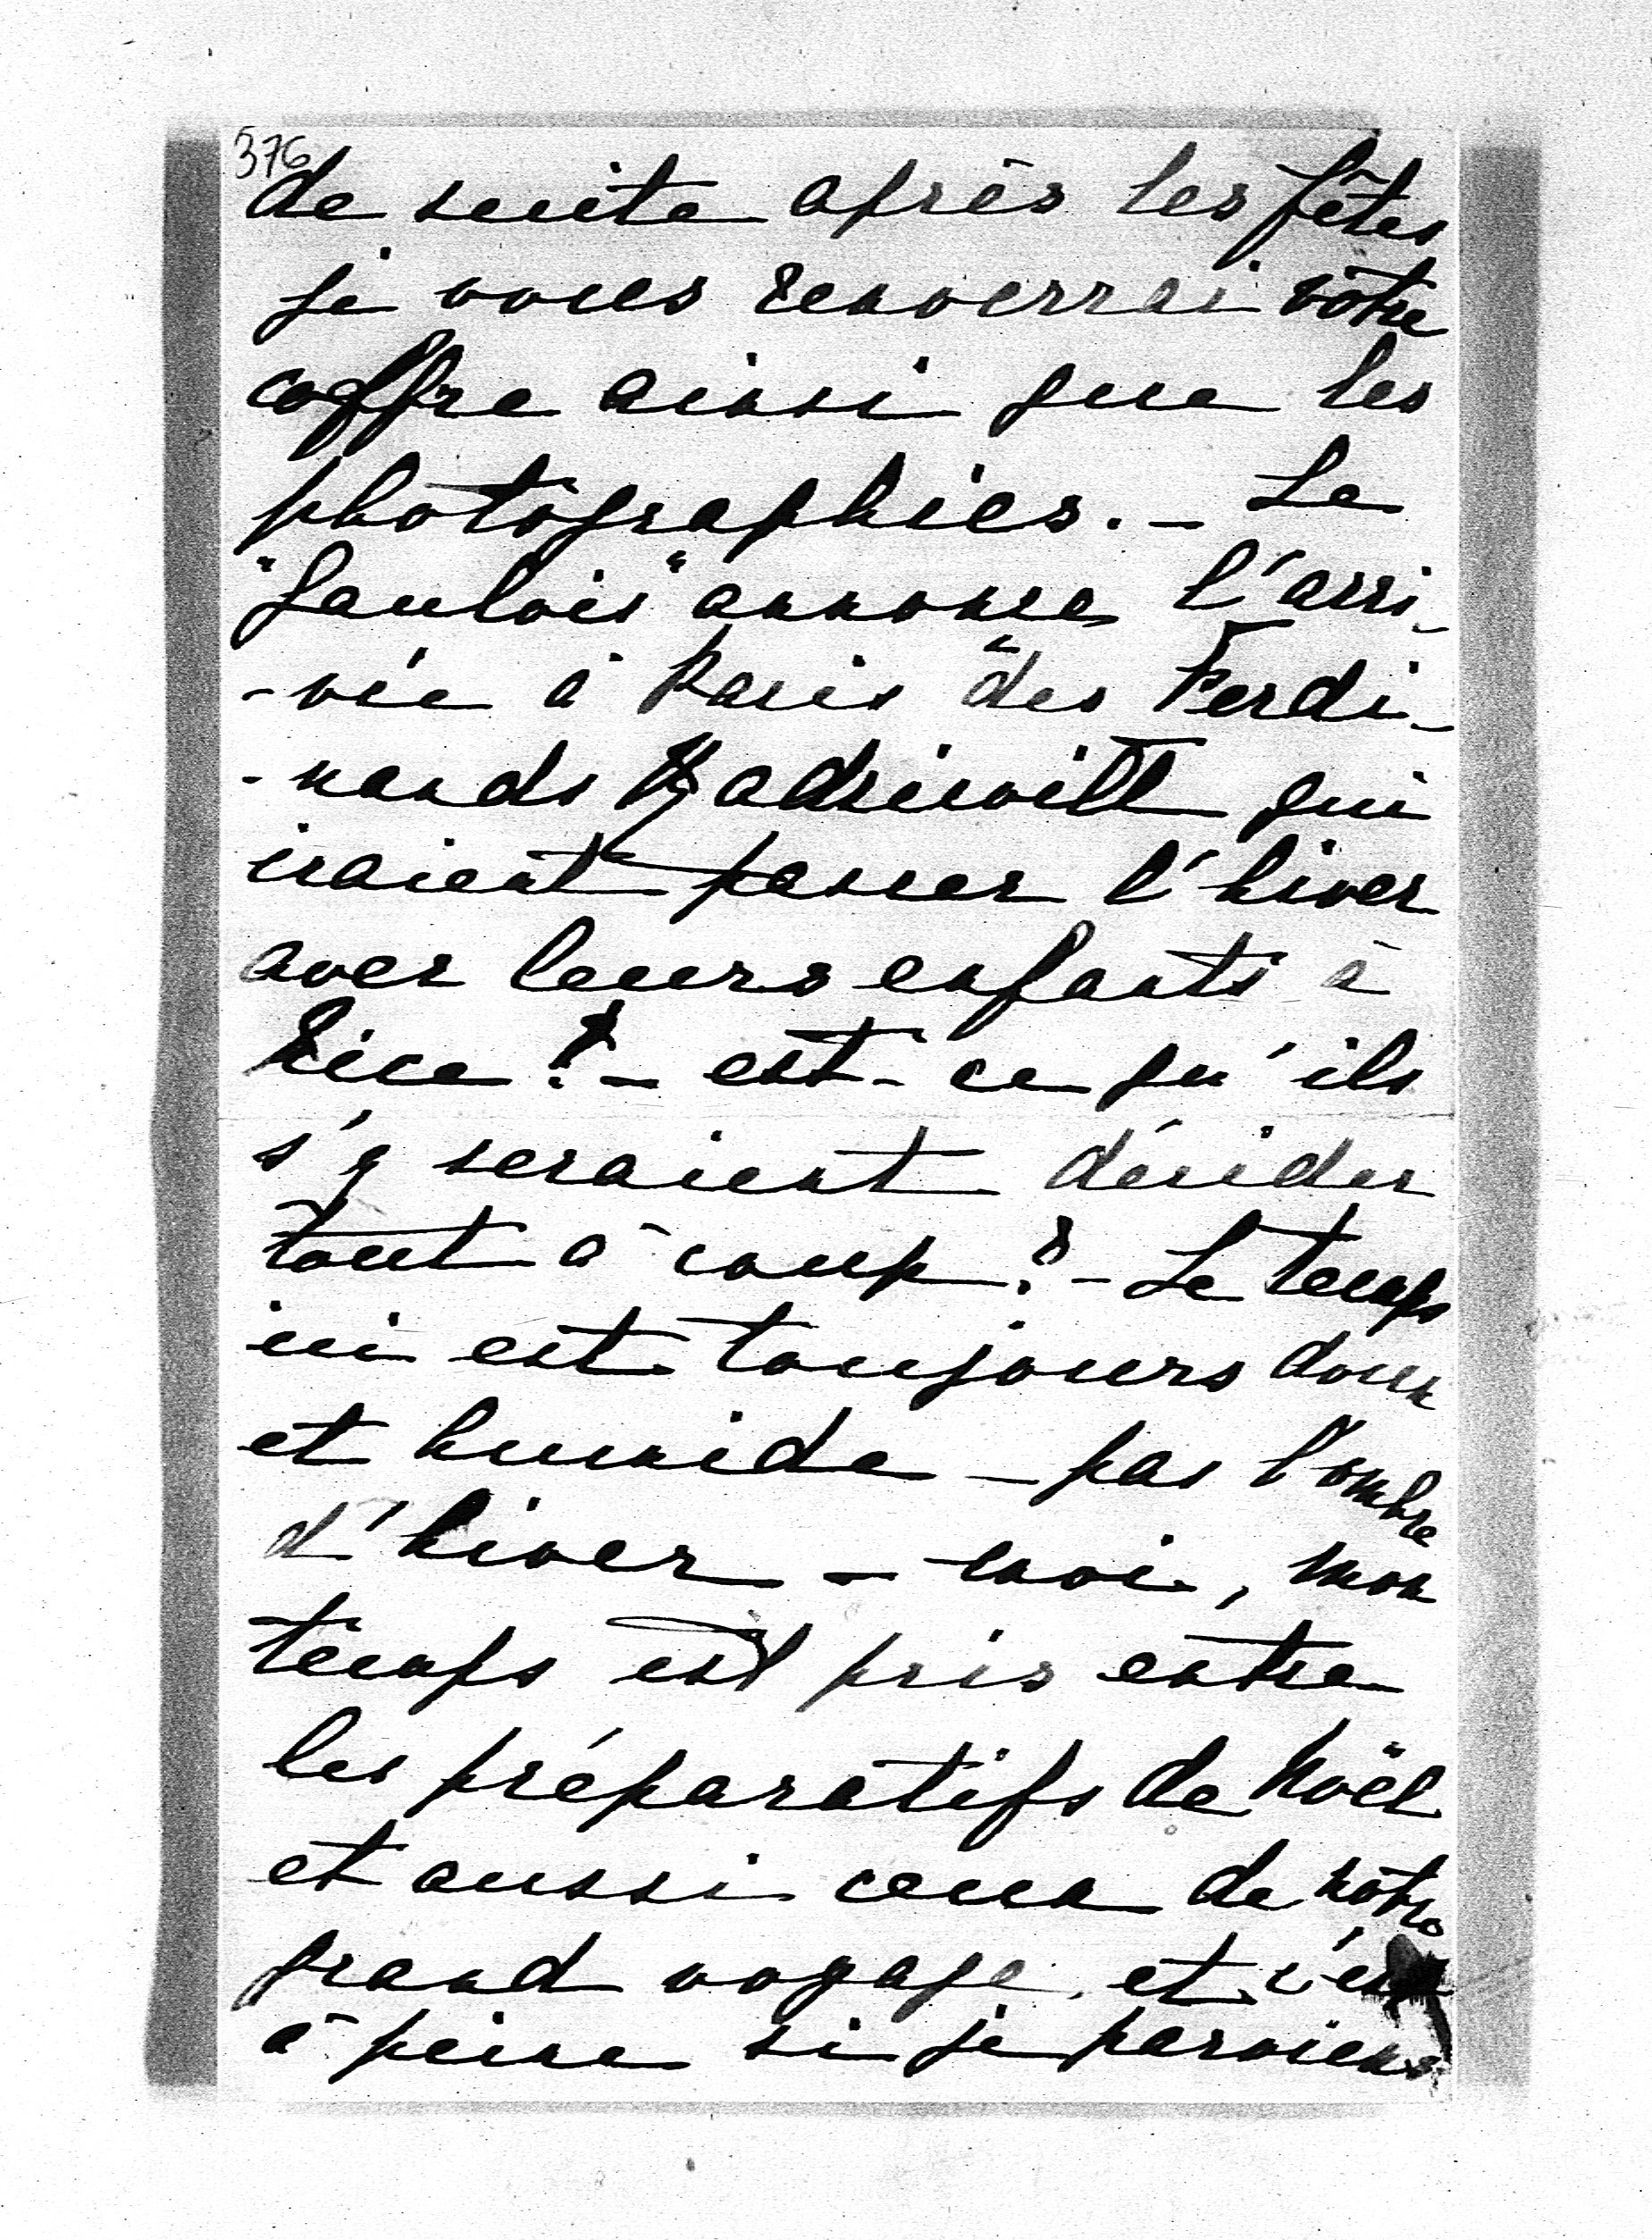 376
de suite après les fêtes
je vous renverrai votre
coffre ainsi que les
photographies. - Le
"Gaulois" annonce l'arri-
-vée à Paris des Ferdi-
-nands Radziwill qui
iraient passer l'hiver
avec leurs enfants à
Nice! - est-ce qu'ils
s'y seraient décider
tout à coup? - Le temps
ici est toujours doux
et humide - pas l'ombre
d'hiver - moi, mon
temps est pris entre
les préparatifs de Noël
et aussi ceux de notre
grand voyage, et c'est
à peine si je parviens